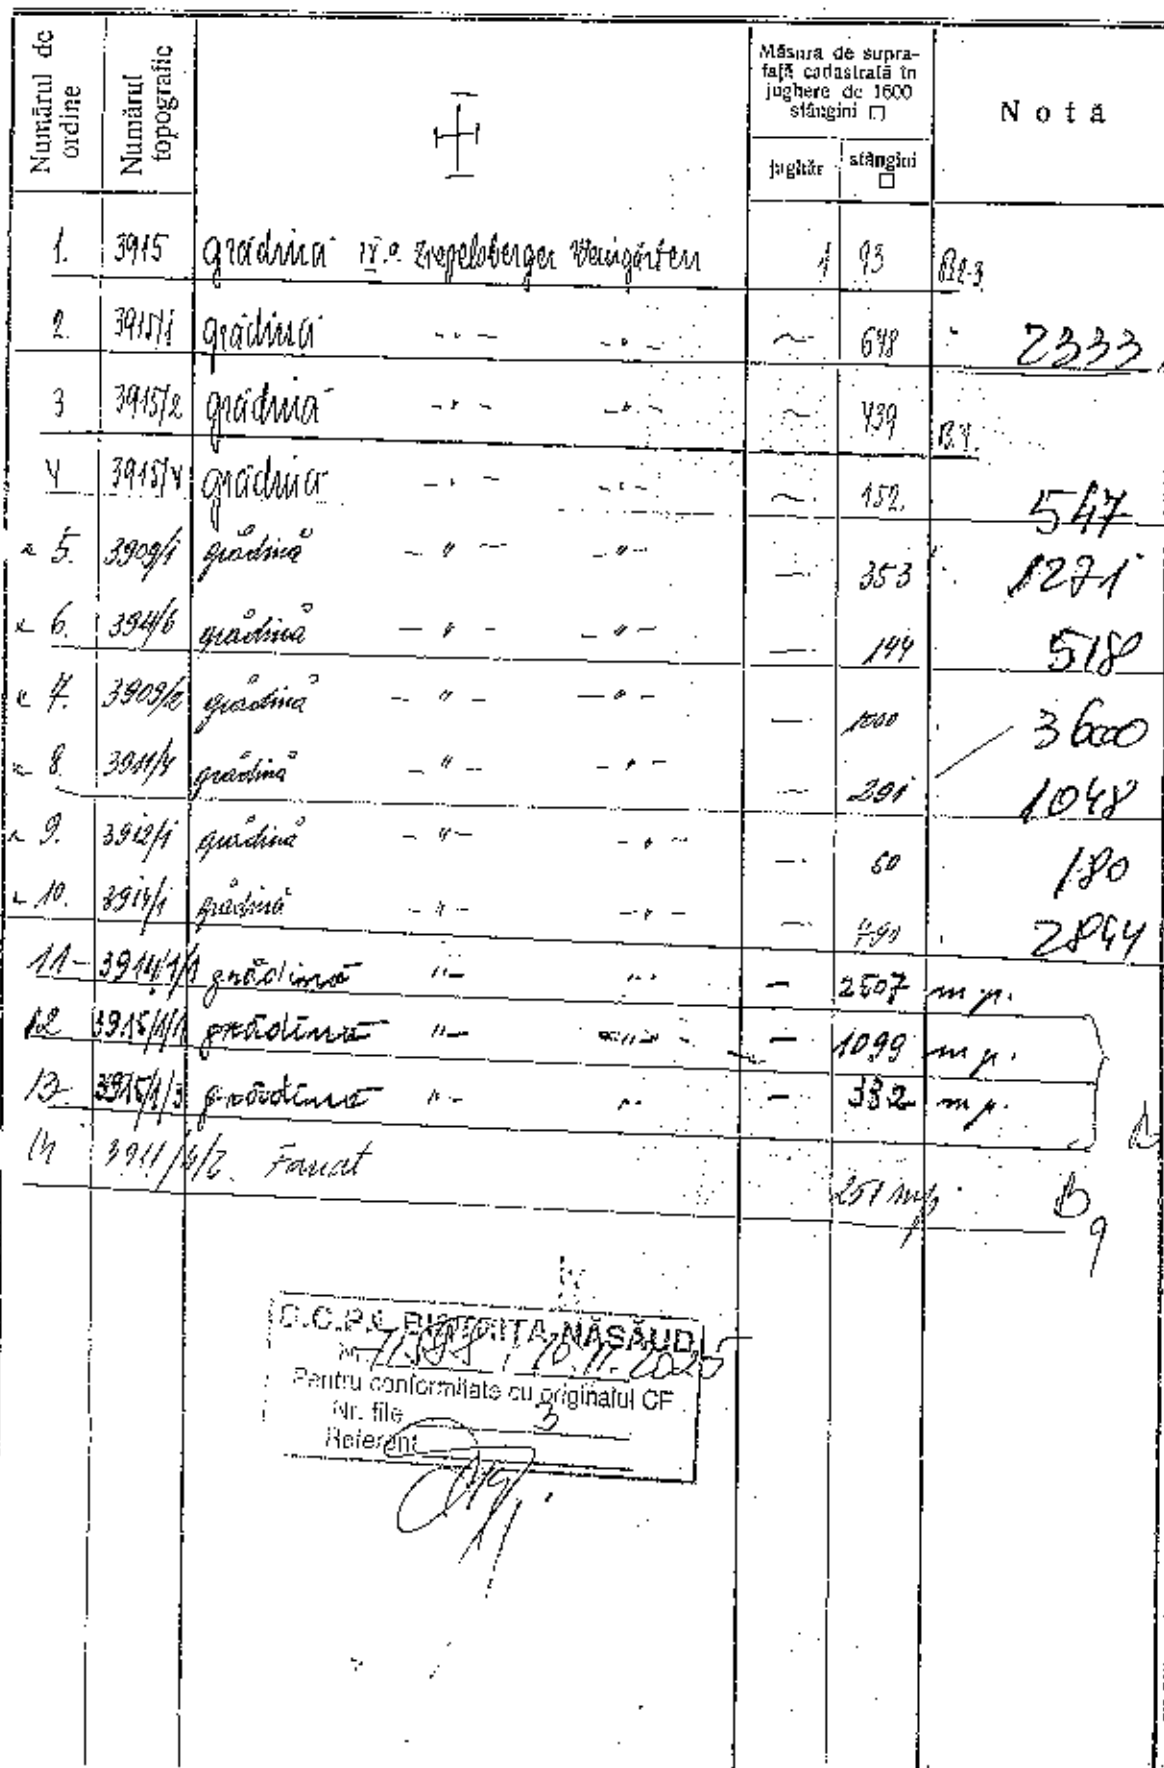 Numărul de ordine
Numărul topografic
Măsura de suprafață cadastrală în jughere de 1600 stângini □
jughăr
stângini □
Notă
1. 3915 grădină IV.a. Weingärten 1 93 B2-3.
2. 3915/1 grădină -〃- -〃- ~ 648 2333
3 3915/2 grădină -〃- -〃- ~ 439 B.4.
4 3915/4 grădină -〃- -〃- ~ 152. 547
5. 3909/1 grădină -〃- -〃- — 353 1271
6. grădină -〃- -〃- — 144 518
7. 3909/2 grădină -〃- -〃- — 1000 3600
8. 3911/4 grădină -〃- -〃- — 291 1048
9. 3912/1 grădină -〃- -〃- — 50 180
10. 3914/1 grădină -〃- -〃- — 790 2844
11- 3914/1/1 grădină 〃- 〃- - 2507 m.p.
12 3915/1/1 grădină 〃- 〃- - 1099 m.p.
13- 3915/1/3 grădină 〃- 〃- - 332 m.p.
14 3911/4/2. Fanat 257 mp. B9
O.C.P.I. BISTRIȚA-NĂSĂUD
Nr.
Pentru conformitate cu originalul CF
Nr. file 3
Referent